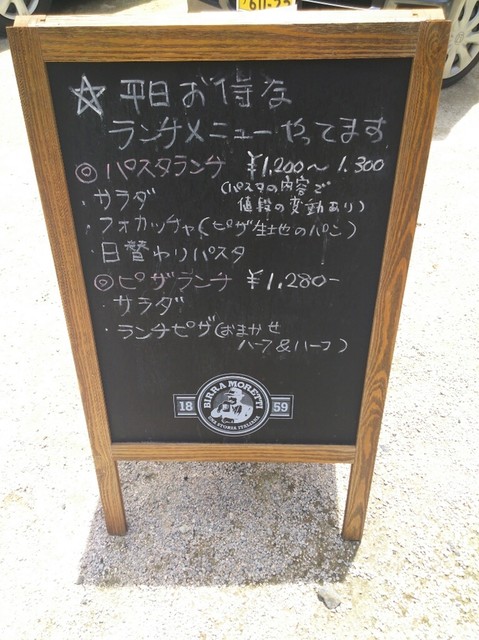 ☆平日お得な
ランチメニューやってます
◎パスタランチ ¥1,200〜1.300
(パスタの内容で
値段の変動あり)
・サラダ
・フォカッチャ(ピザ生地のパン)
・日替わりパスタ
◎ピザランチ ¥1,280-
・サラダ
・ランチピザ(おまかせ
ハーフ&ハーフ)
BIRRA MORETTI
18 59
UNA STORIA ITALIANA